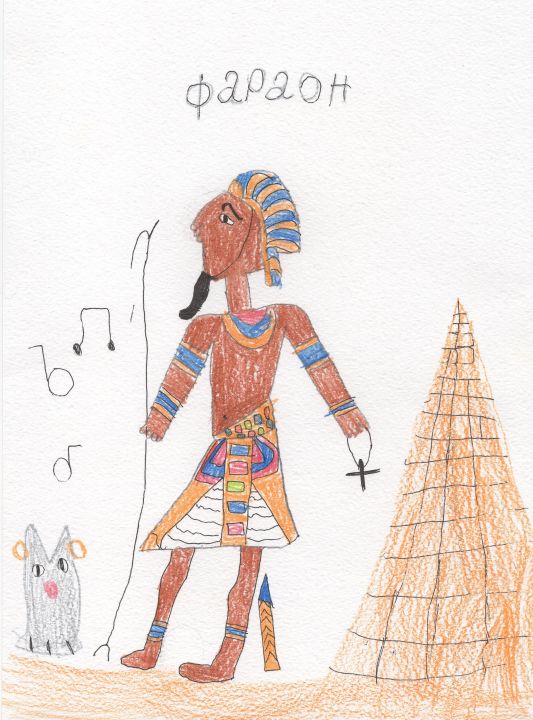 фараон